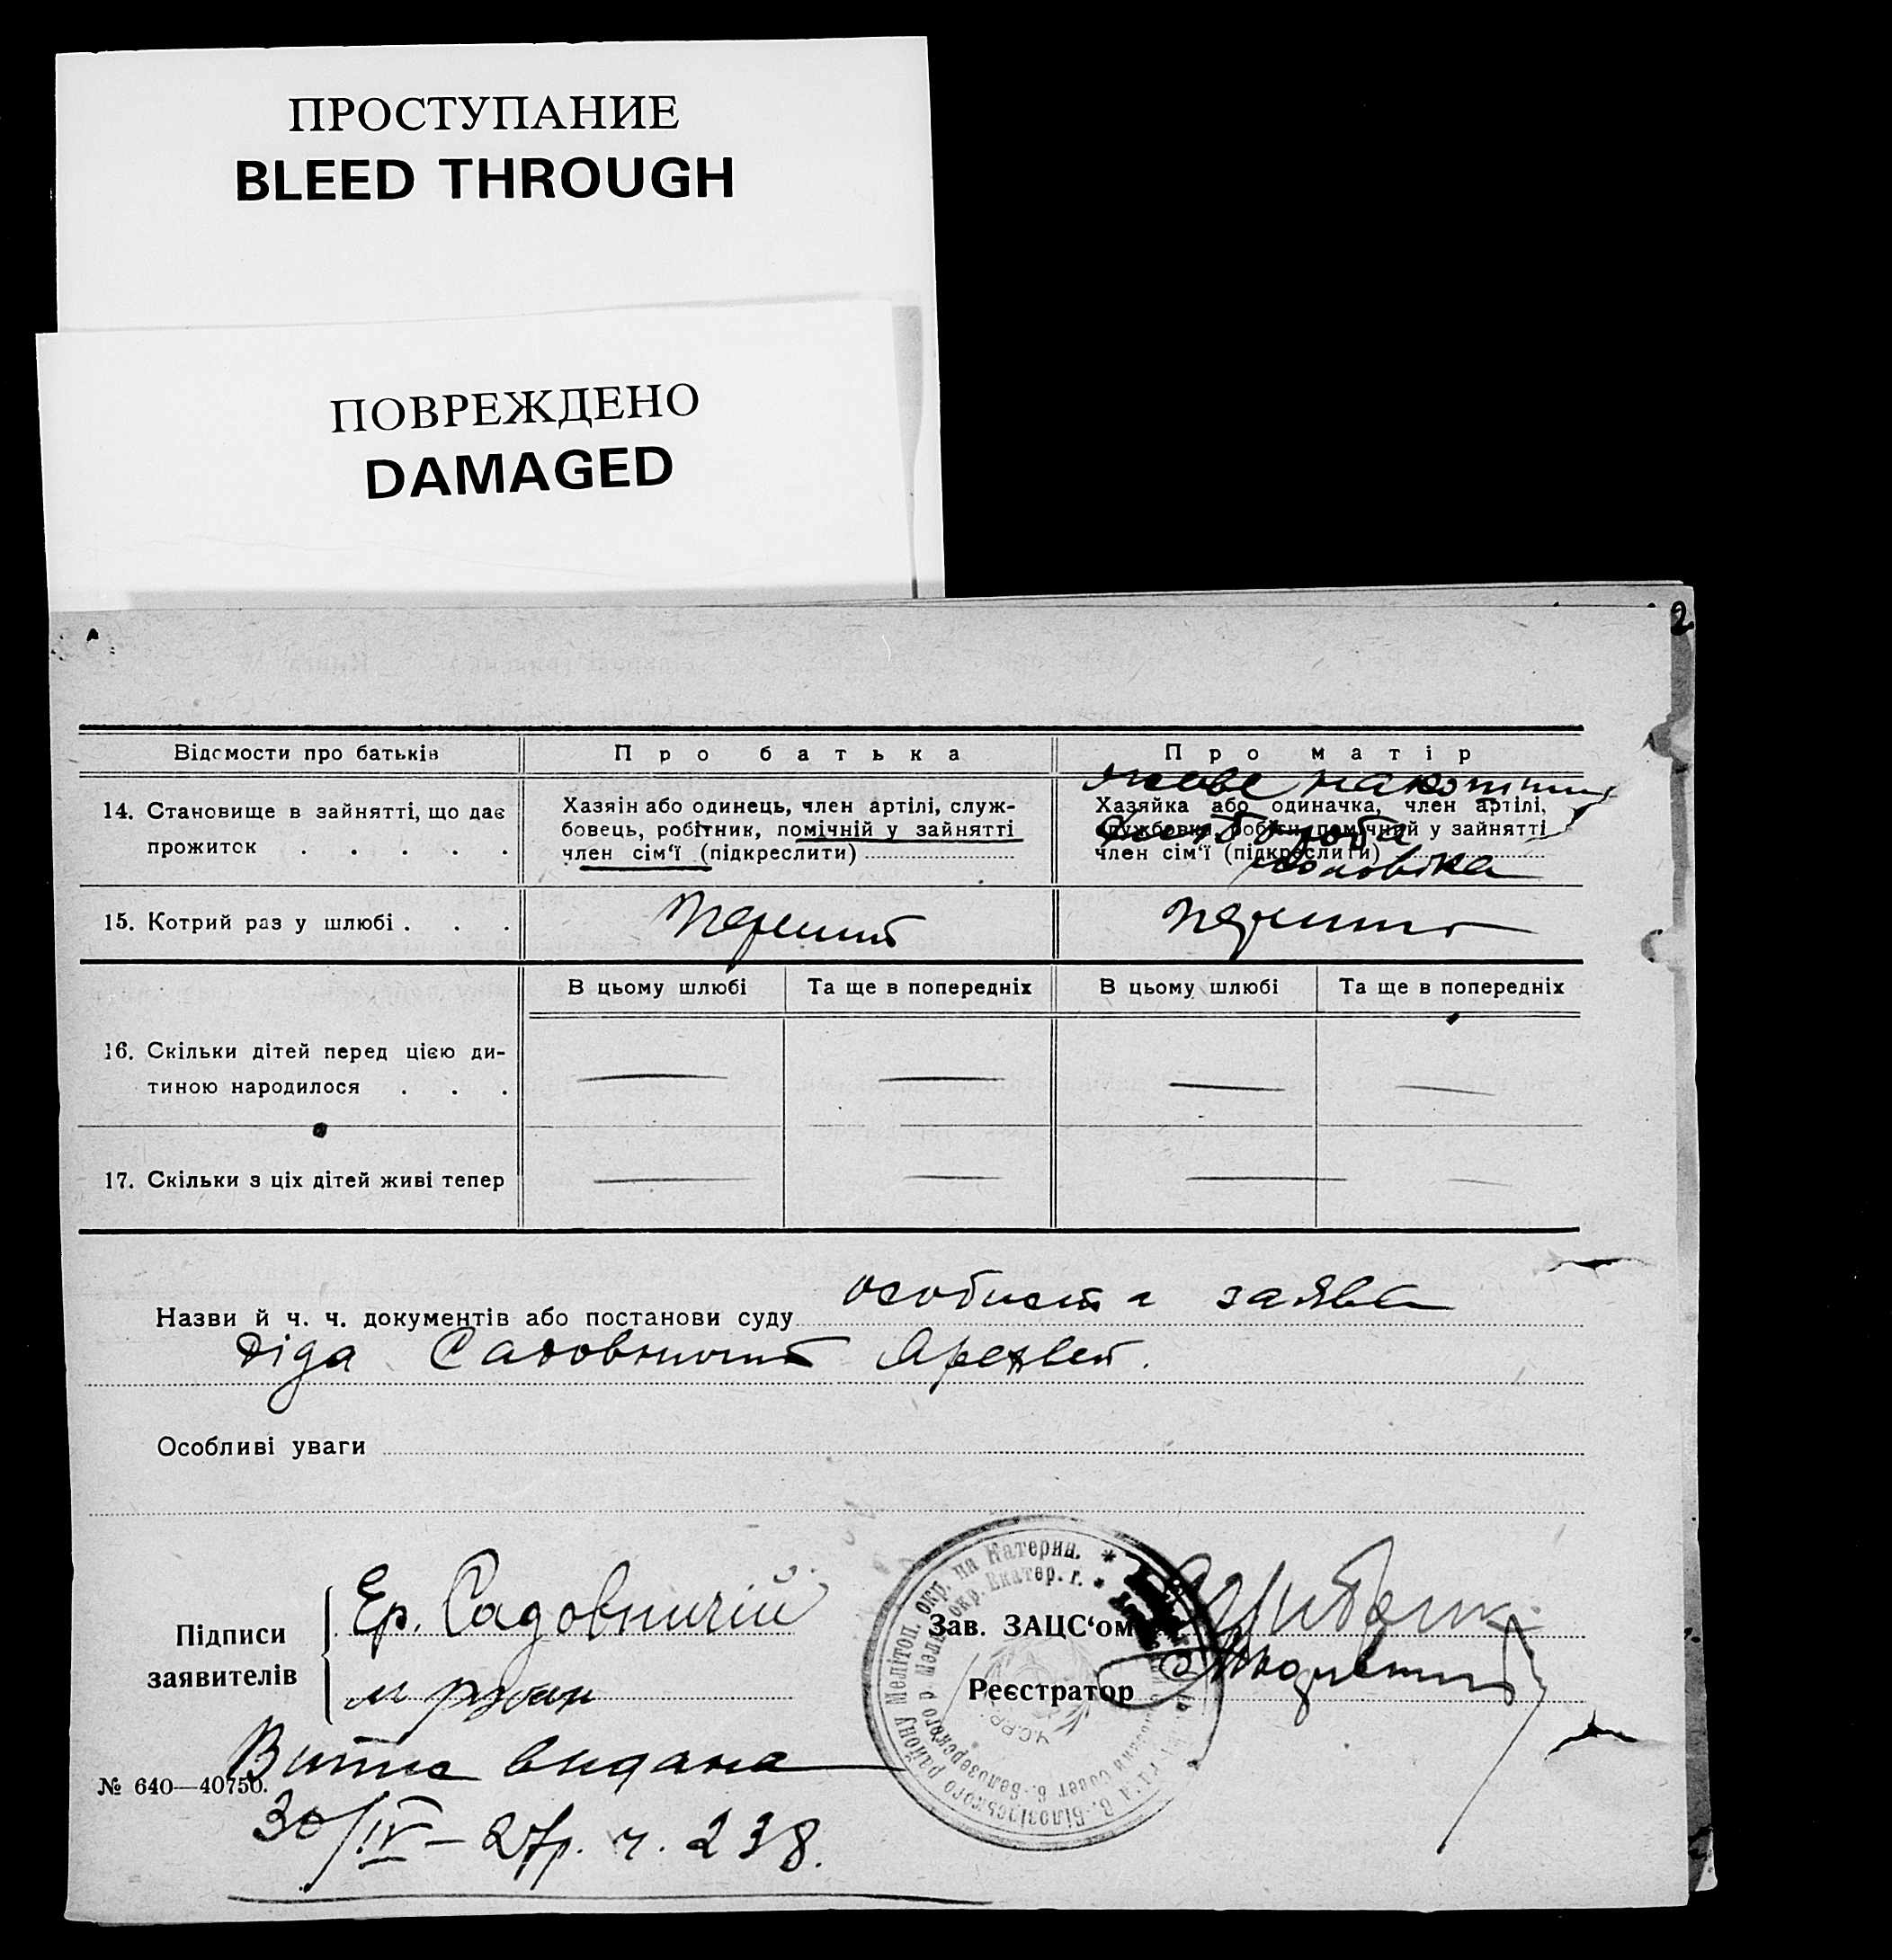 ПРОСТУПАНИЕ
BLEED THROUGH
ПОВРЕЖДЕНО
DAMAGED
2
Відомости про батьків
Про батька
Про матір
14. Становище в зайнятті, що дає
прожиток . . . . .
Хазяїн або одинець, член артілі, служ-
бовець, робітник, помічній у зайнятті
член сім'ї (підкреслити)
живе на кошти
Хазяйка або одиначка, член артілі,
службовка, робітн. помічний у зайнятті
член сім'ї (підкреслити)
чоловіка
15. Котрий раз у шлюбі . . .
Перший
перший
В цьому шлюбі
Та ще в попередніх
В цьому шлюбі
Та ще в попередніх
16. Скільки дітей перед цією ди-
тиною народилося . . .
17. Скільки з ціх дітей живі тепер
Назви й ч. ч. документів або постанови суду особиста заява
діда Садовничий
Особливі уваги
Підписи
заявителів
Ер. Садовничій
Зав. ЗАЦС'ом
Реєстратор
Витяг видана
№ 640—40750.
30/IV – 27р. ч. 238.